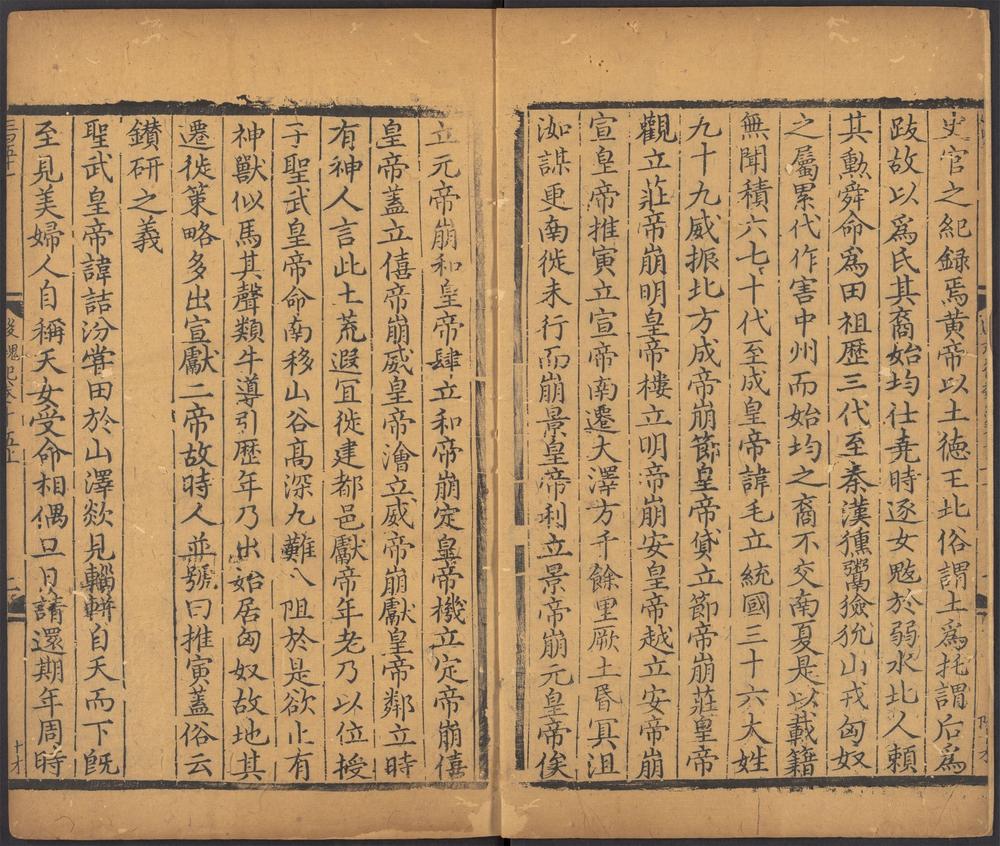 史官之紀録焉黄帝以土徳王北俗謂土爲托謂后爲
跋故以爲氏其裔始均仕堯時逐女魃於弱水北人頼
其勲舜命爲田祖歴三代至秦漢獯鬻獫狁山戎匈奴
之屬累代作害中州而始均之裔不交南夏是以載籍
無聞積六七十代至成皇帝諱毛立統國三十六大姓
九十九威振北方成帝崩節皇帝貸立節帝崩莊皇帝
觀立莊帝崩明皇帝樓立明帝崩安皇帝越立安帝崩
宣皇帝推寅立宣帝南遷大澤方千餘里厥土昏冥沮
洳謀更南徙未行而崩景皇帝利立景帝崩元皇帝俟
立元帝崩和皇帝肆立和帝崩定皇帝機立定帝崩僖
皇帝蓋立僖帝崩威皇帝濬立威帝崩獻皇帝鄰立時
有神人言此土荒遐冝徙建都邑獻帝年老乃以位授
子聖武皇帝命南移山谷髙深九難八阻於是欲止有
神獸似馬其聲類牛導引歴年乃出始居匈奴故地其
遷徙策略多出宣獻二帝故時人並號曰推寅蓋俗云
鑚研之義
聖武皇帝諱詰汾嘗田於山澤欻見輜軿自天而下旣
至見美婦人自稱天女受命相偶旦日請還期年周時